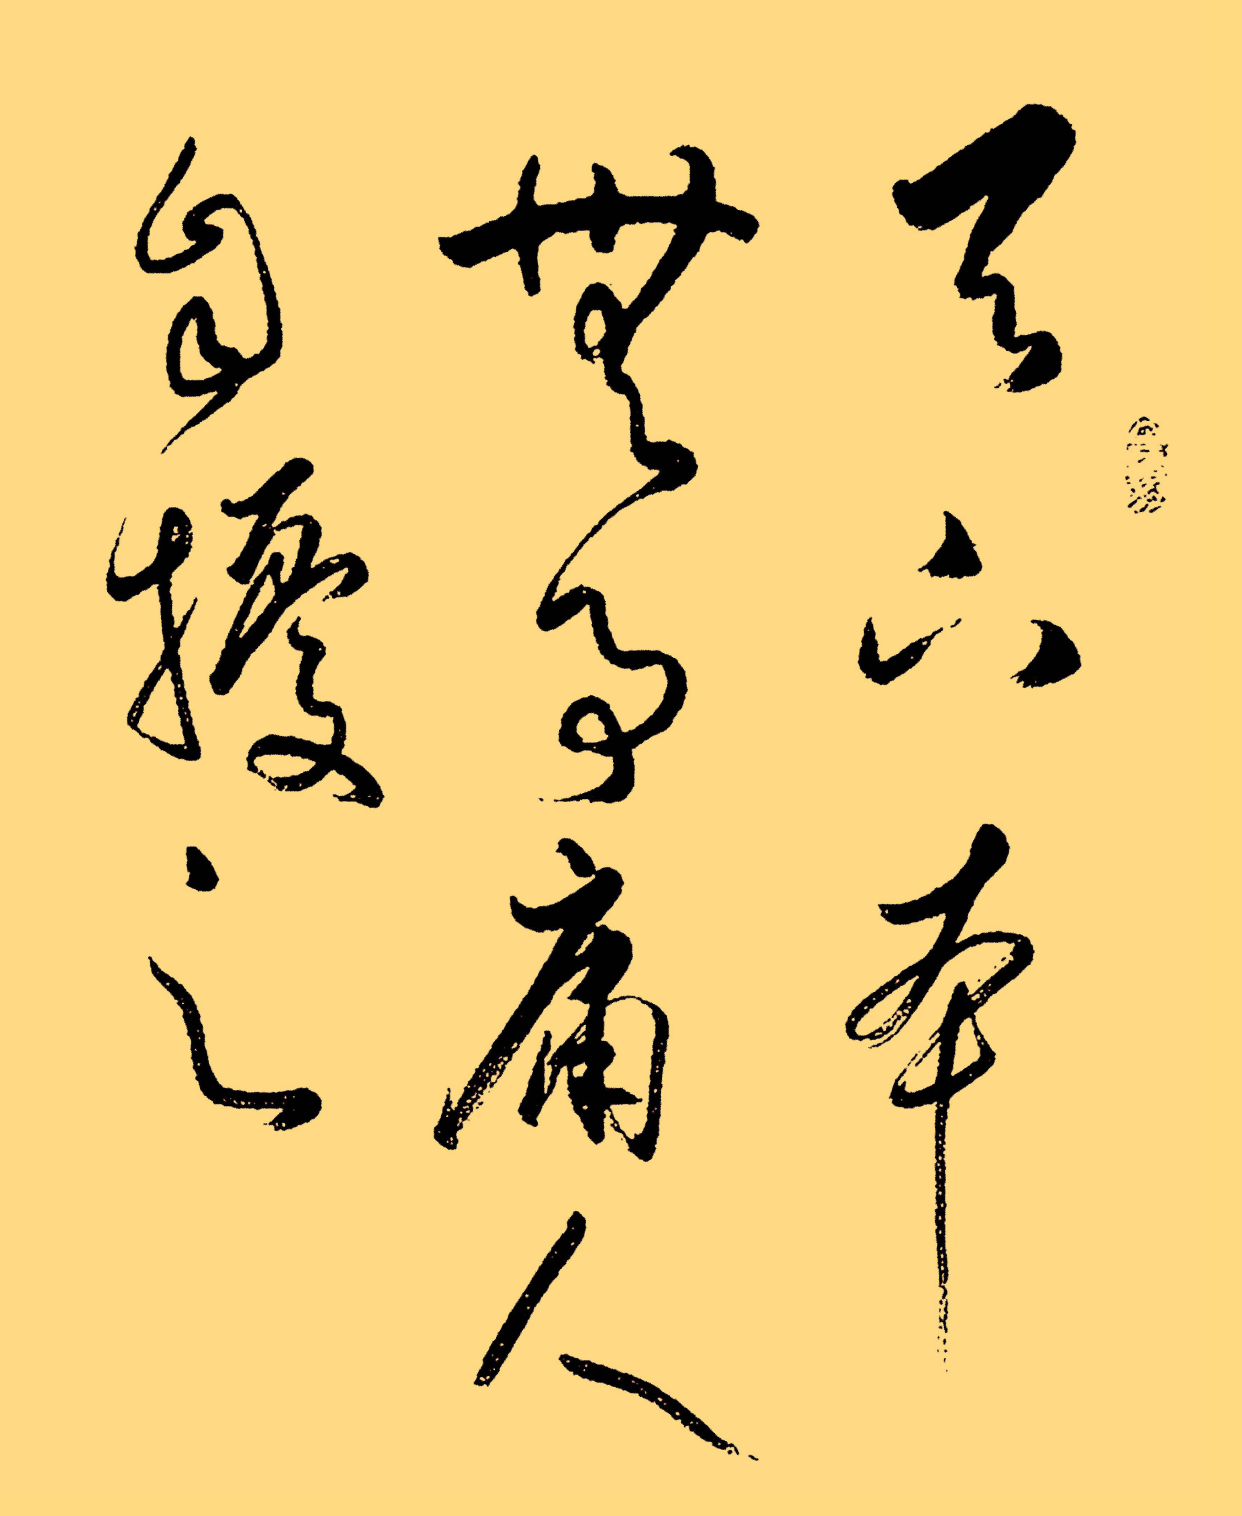 天下本
無事庸人
自擾之